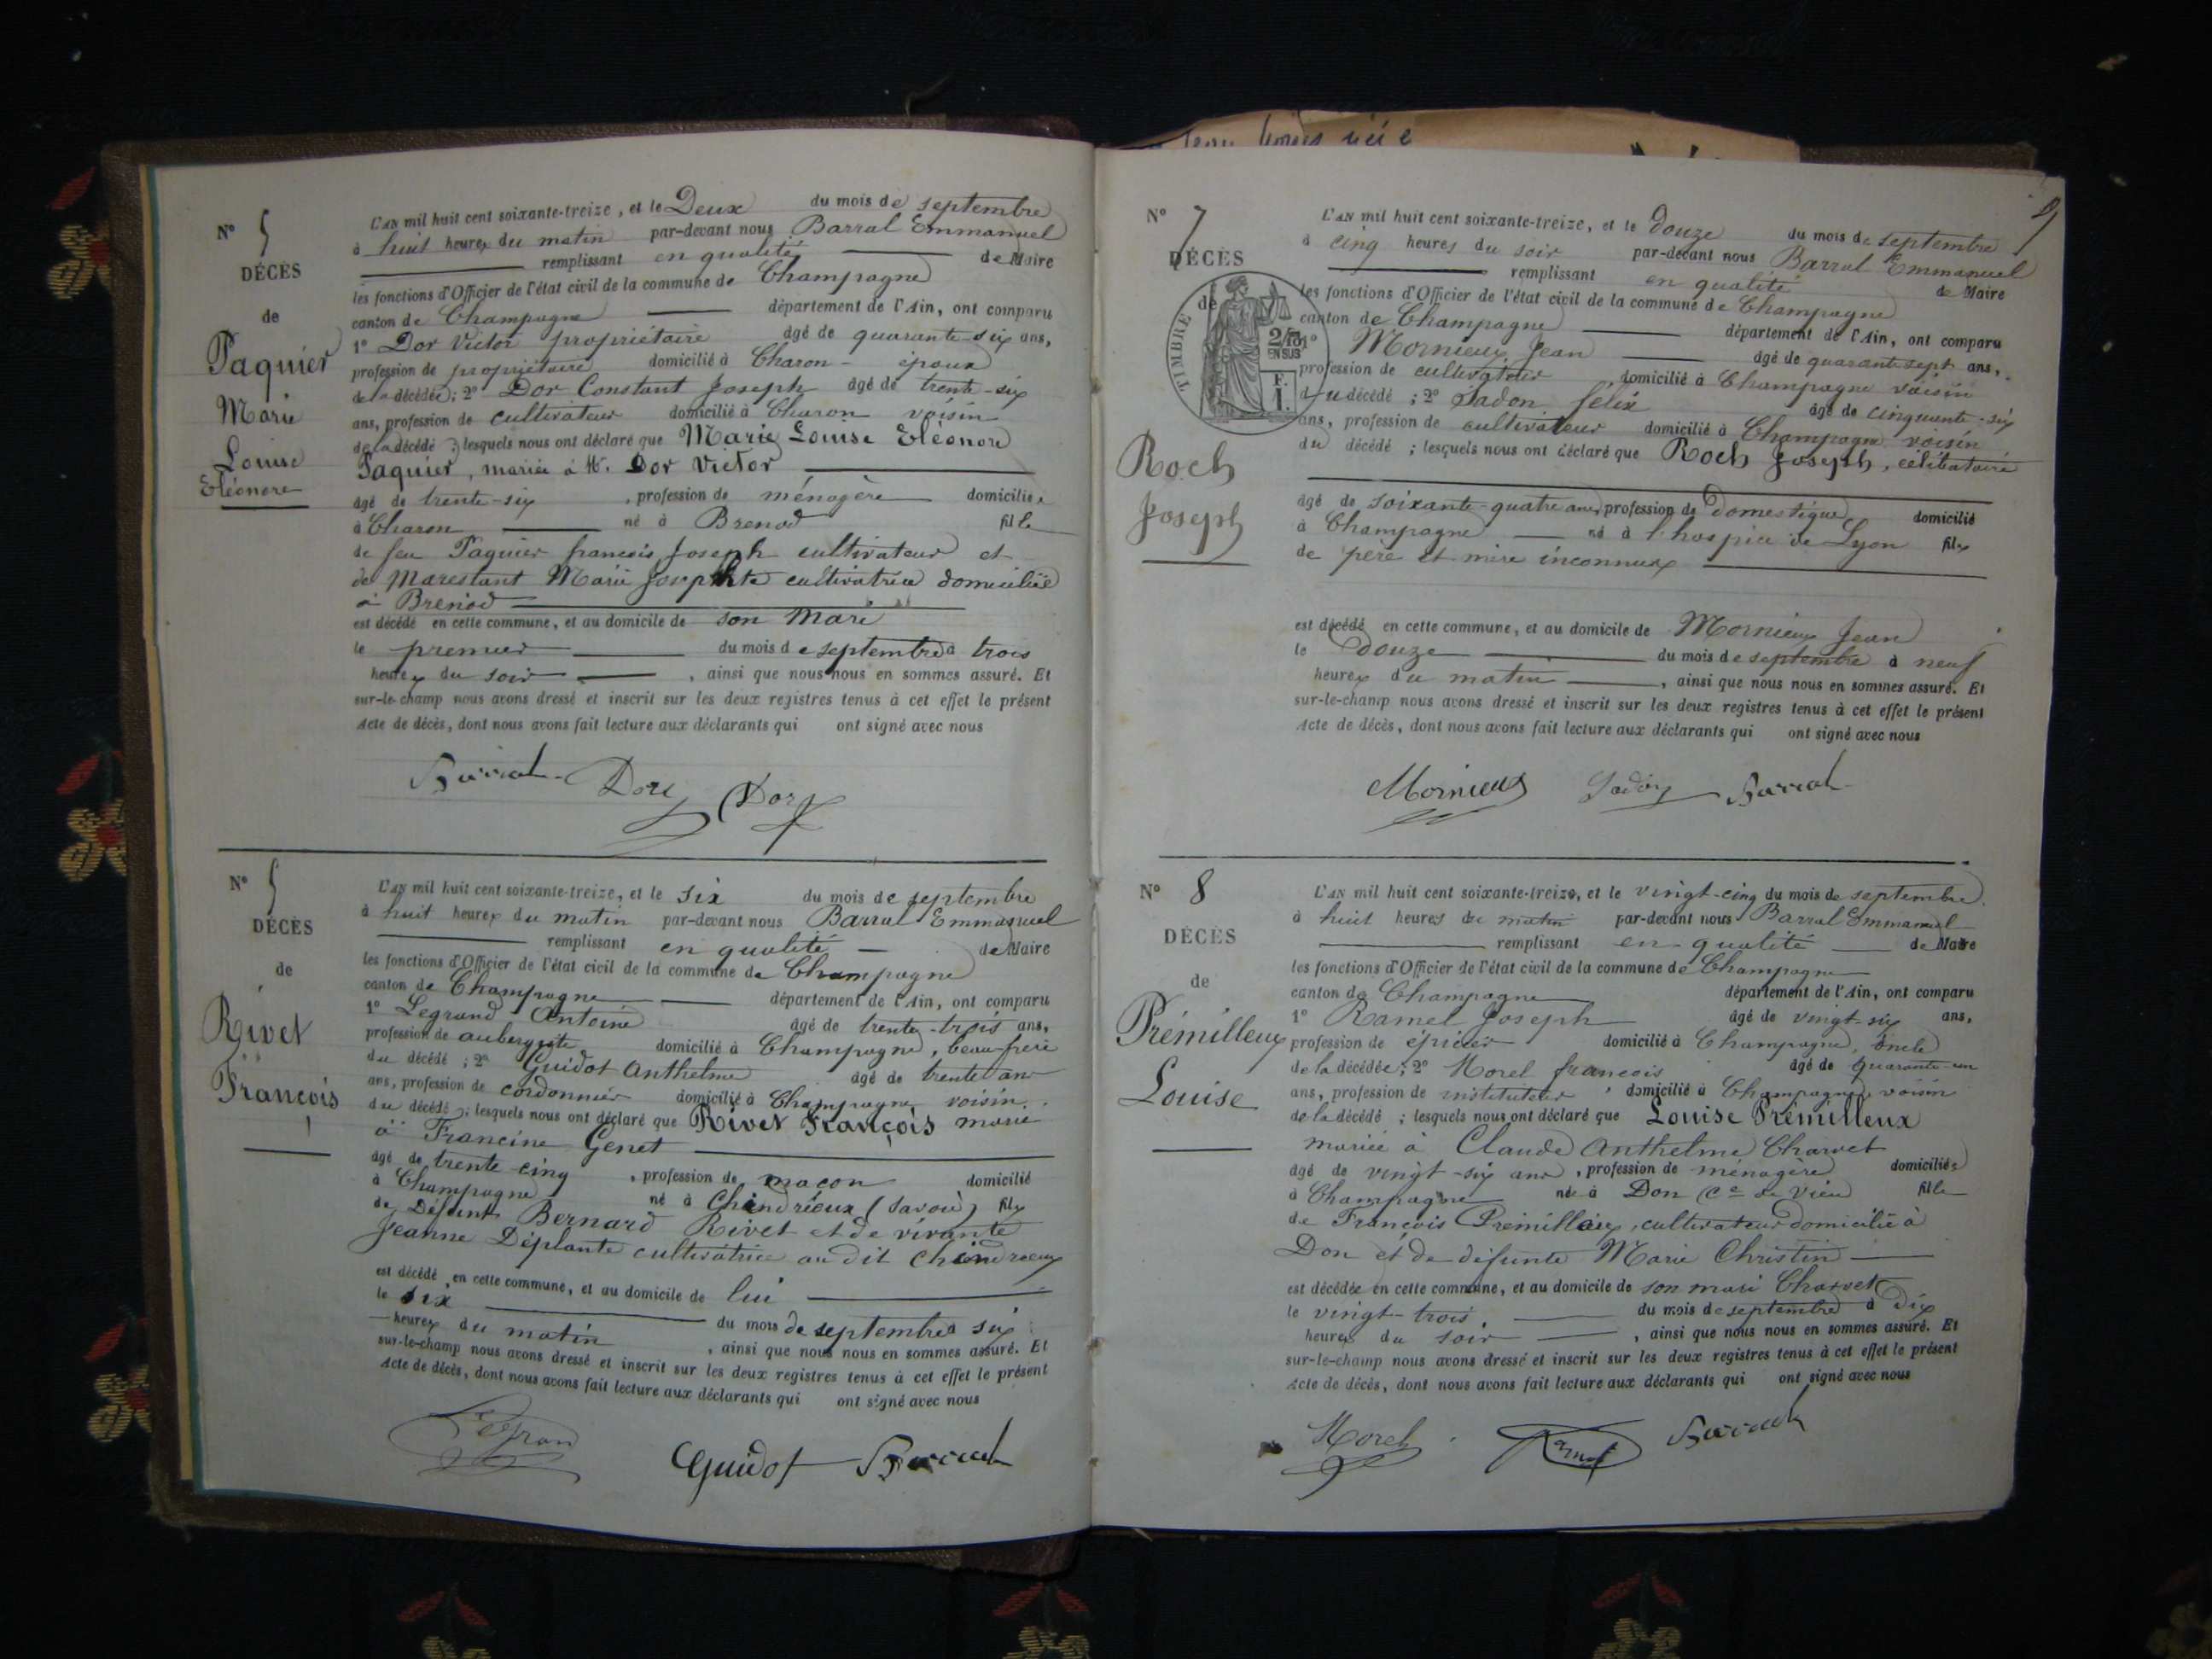 N° 5
DÉCÈS
de
Paquier
Marie
Louise
Eléonore
L'AN mil huit cent soixante-treize, et le Deux du mois de septembre
à huit heures du matin par-devant nous Barral Emmanuel
remplissant en qualité de Maire
les fonctions d'Officier de l'état civil de la commune de Champagne
canton de Champagne département de l'Ain, ont comparu
1° Dor Victor propriétaire âgé de quarante-six ans,
profession de propriétaire domicilié à Charon époux
de la décédée; 2° Dor Constant Joseph âgé de trente-six
ans, profession de cultivateur domicilié à Charon voisin
de la décédé; lesquels nous ont déclaré que Marie Louise Eléonore
Paquier, mariée à Mr. Dor Victor
âgé de trente-six, profession de ménagère domiciliée
à Charon né à Brenod fille
de feu Paquier francois Joseph cultivateur et
de Marestant Marie Josephte cultivatrice domiciliée
à Brenod
est décédé en cette commune, et au domicile de son mari
le premier du mois de septembre à trois
heures du soir, ainsi que nous nous en sommes assuré. Et
sur-le-champ nous avons dressé et inscrit sur les deux registres tenus à cet effet le présent
Acte de décès, dont nous avons fait lecture aux déclarants qui ont signé avec nous
Barral Dor Dor
N° 5
DÉCÈS
de
Rivet
François
L'AN mil huit cent soixante-treize, et le six du mois de septembre
à huit heures du matin par-devant nous Barral Emmanuel
remplissant en qualité de Maire
les fonctions d'Officier de l'état civil de la commune de Champagne
canton de Champagne département de l'Ain, ont comparu
1° Legrand Antoine âgé de trente-trois ans,
profession de aubergiste domicilié à Champagne, beau-frère
du décédé; 2° Guidot Anthelme âgé de trente ans
ans, profession de cordonnier domicilié à Champagne voisin
du décédé; lesquels nous ont déclaré que Rivet François marié
à Francine Genet
âgé de trente cinq, profession de macon domicilié
à Champagne né à Chindrieux (Savoie) fils
de Défunt Bernard Rivet et de vivante
Jeanne Déplante cultivatrice au dit Chindrieux
est décédé en cette commune, et au domicile de lui
le six du mois de septembre à six
heures du matin, ainsi que nous nous en sommes assuré. Et
sur-le-champ nous avons dressé et inscrit sur les deux registres tenus à cet effet le présent
Acte de décès, dont nous avons fait lecture aux déclarants qui ont signé avec nous
Legrand Guidot Barral
9
N° 7
DÉCÈS
de
TIMBRE
2/10
EN SUS
F.
1.
Roch
Joseph
L'AN mil huit cent soixante-treize, et le douze du mois de septembre
à cinq heures du soir par-devant nous Barral Emmanuel
remplissant en qualité de Maire
les fonctions d'Officier de l'état civil de la commune de Champagne
canton de Champagne département de l'Ain, ont comparu
1° Mornieux Jean âgé de quarante sept ans,
profession de cultivateur domicilié à Champagne voisin
du décédé; 2° Jadon félix âgé de cinquante-six
ans, profession de cultivateur domicilié à Champagne voisin
du décédé; lesquels nous ont déclaré que Roch Joseph, célibataire
âgé de soixante-quatre ans, profession de Domestique domicilié
à Champagne né à l'hospice de Lyon fils
de père et mère inconnus
est décédé en cette commune, et au domicile de Mornieux Jean
le Douze du mois de septembre à neuf
heures du matin, ainsi que nous nous en sommes assuré. Et
sur-le-champ nous avons dressé et inscrit sur les deux registres tenus à cet effet le présent
Acte de décès, dont nous avons fait lecture aux déclarants qui ont signé avec nous
Mornieux Jadon Barral
N° 8
DÉCÈS
de
Prémilleux
Louise
L'AN mil huit cent soixante-treize, et le vingt-cinq du mois de septembre
à huit heures du matin par-devant nous Barral Emmanuel
remplissant en qualité de Maire
les fonctions d'Officier de l'état civil de la commune de Champagne
canton de Champagne département de l'Ain, ont comparu
1° Ramel Joseph âgé de vingt-six ans,
profession de épicier domicilié à Champagne, oncle
de la décédée; 2° Morel francois âgé de quarante-un
ans, profession de instituteur domicilié à Champagne, voisin
de la décédé; lesquels nous ont déclaré que Louise Prémilleux
mariée à Claude Anthelme Charvet
âgé de vingt-six ans, profession de ménagère domiciliée
à Champagne née à Don (Cne de Vieu) fille
de François Prémilleux, cultivateur domicilié à
Don et de défunte Marie Christin
est décédée en cette commune, et au domicile de son mari Charvet
le vingt-trois du mois de septembre à dix
heures du soir, ainsi que nous nous en sommes assuré. Et
sur-le-champ nous avons dressé et inscrit sur les deux registres tenus à cet effet le présent
Acte de décès, dont nous avons fait lecture aux déclarants qui ont signé avec nous
Morel Ramel Barral